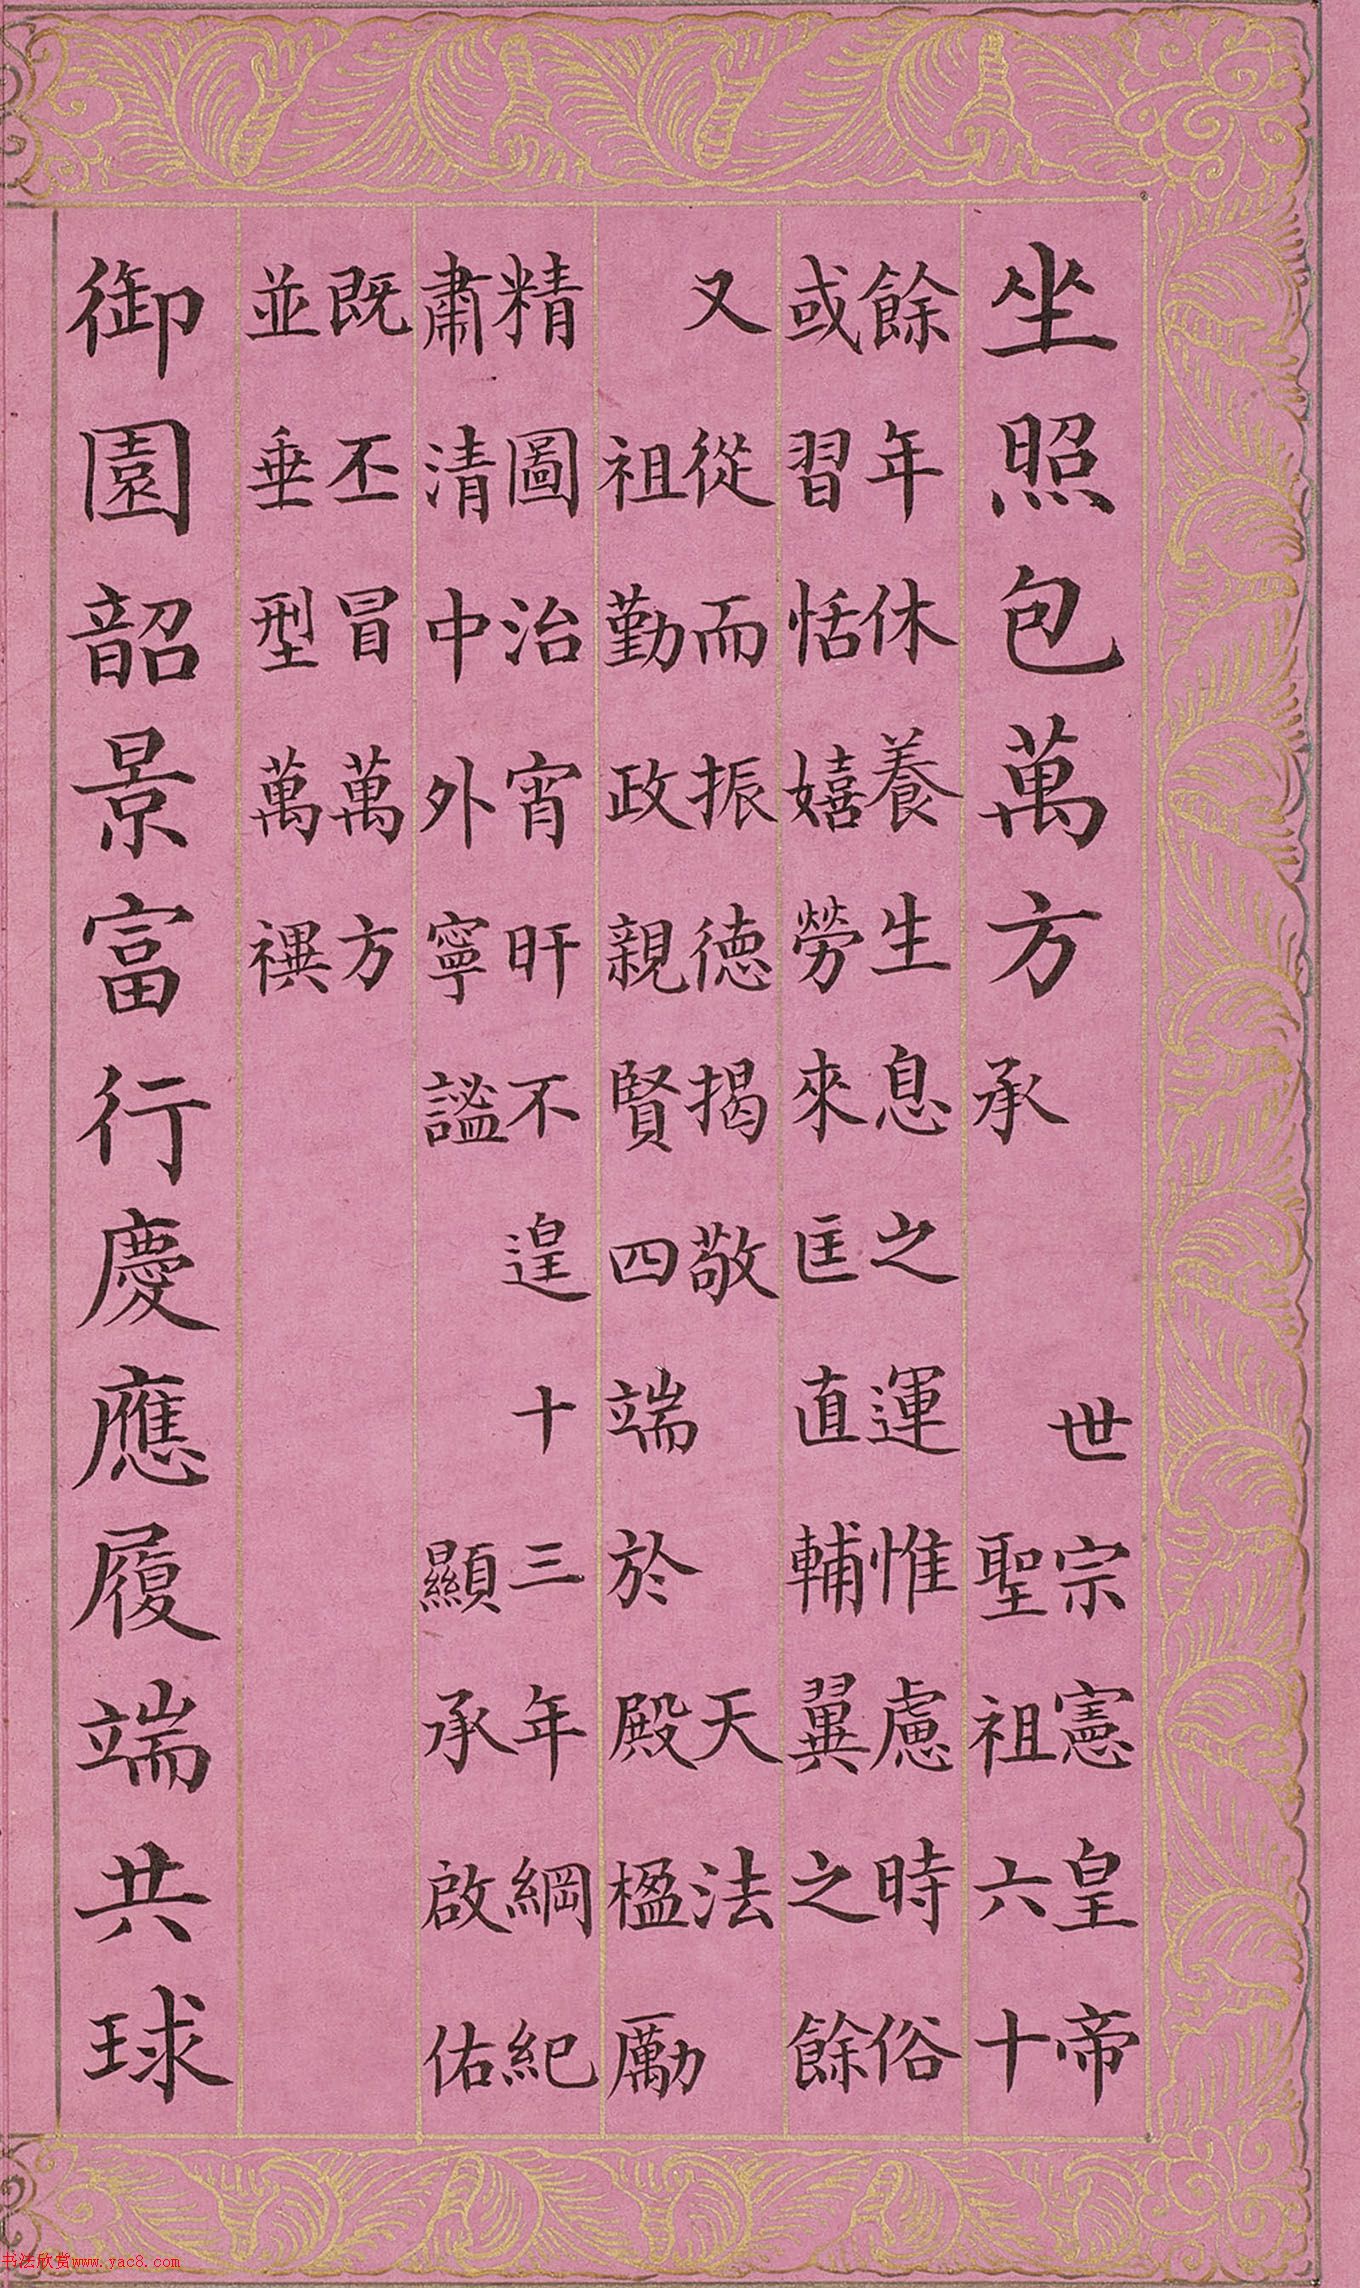 坐照包萬方
世宗憲皇帝
承 聖祖六十
餘年休養生息之運惟慮時俗
或習恬嬉勞來匡直輔翼之餘
又從而振德揭敬 天法
祖勤政親賢四端於殿楹勵
精圖治宵旰不遑十三年綱紀
肅清中外寧謐 顯承啟佑
既丕冒萬方
並垂型萬禩
御園韶景富行慶應履端共球
书法欣赏www.yac8.com